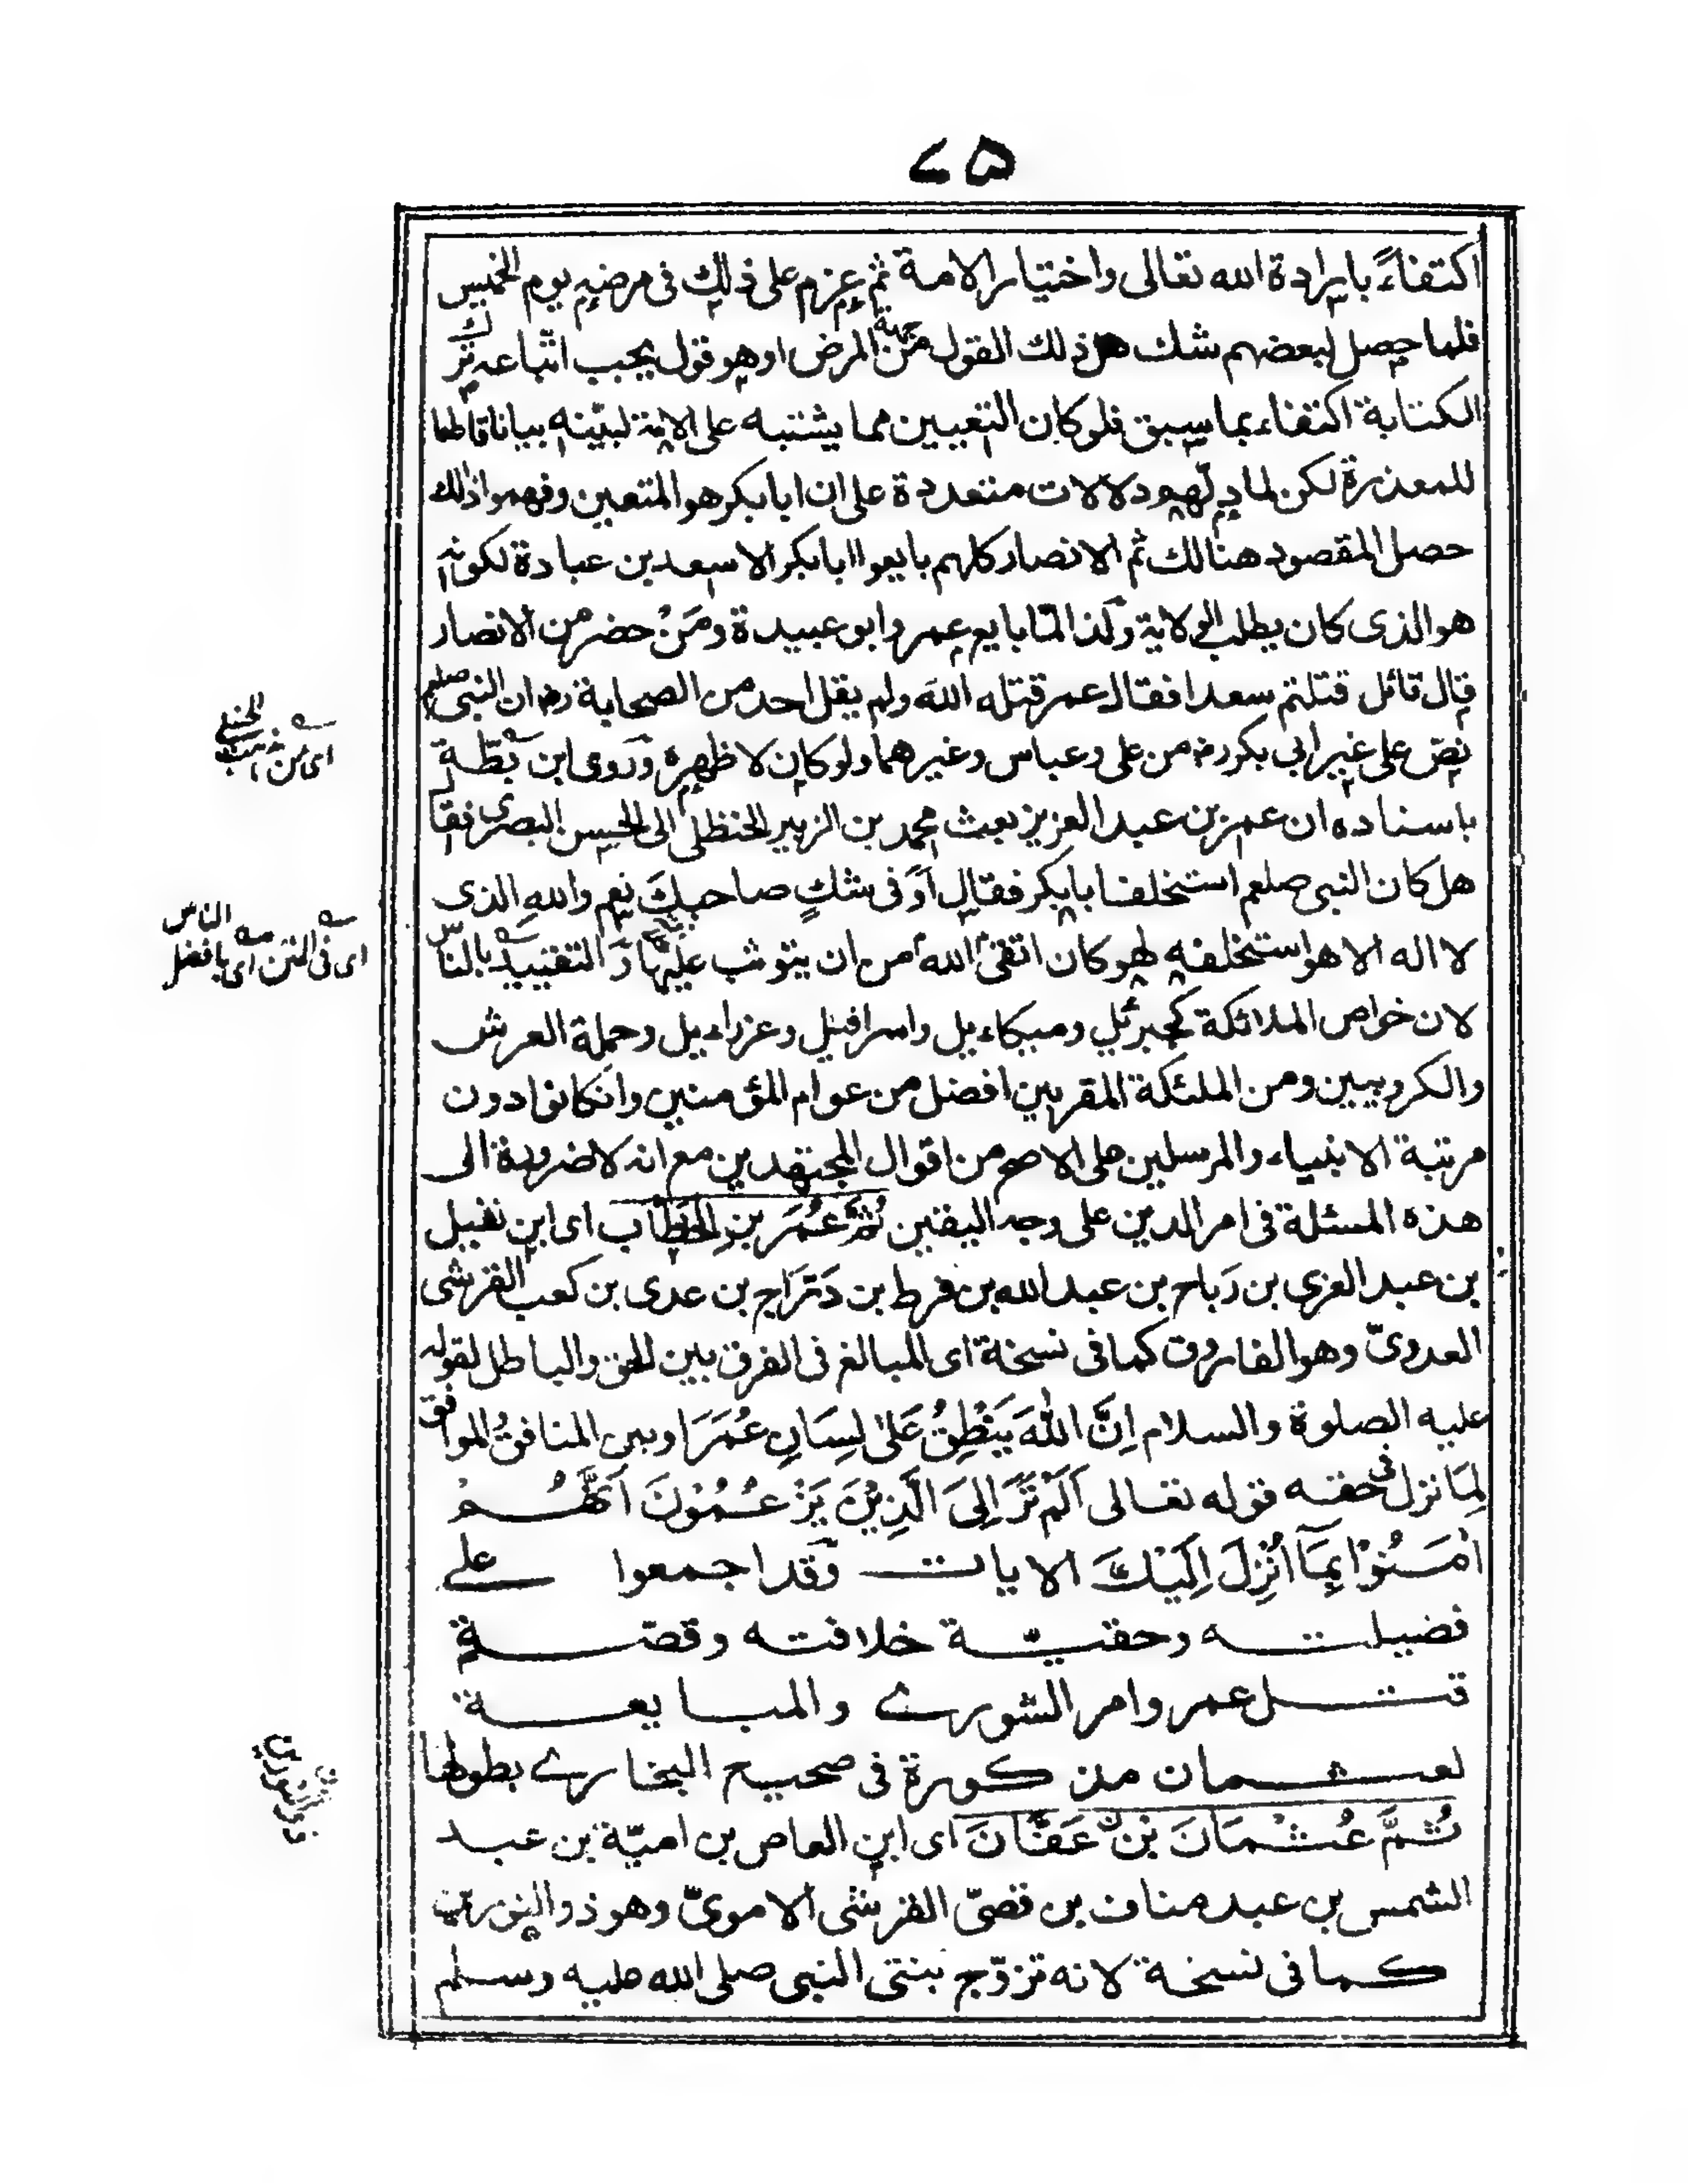 ۷۵
اكتفاءً بارادة الله تعالى واختيار الامة ثم عزم على ذلك فى مرضه يوم الخميس
فلما حصل لبعضهم شك هل ذلك القول من جهة المرض او هو قول يجب اتباعه ترك
الكتابة اكتفاء بما سبق فلو كان التعيين مما يشتبه على الامة لبيّنه بيانا قاطعا
للمعذرة لكن لما دلّهم دلالات متعددة على ان ابا بكر هو المتعين وفهموا ذلك
حصل المقصود هنالك ثم الانصار كلهم بايعوا ابا بكر الا سعد بن عبادة لكونه
هو الذى كان يطلب الولاية وكذا لمّا بايع عمر وابو عبيدة ومَنْ حضر من الانصار
قال قائل قتلتم سعدا فقال عمر قتله الله ولم يقل احد من الصحابة رض ان النبى صلعم
نصّ على غير ابى بكر رض من على وعباس وغيرهما ولو كان لاظهره وروى ابن بطّة
باسناده ان عمر بن عبد العزيز بعث محمد بن الزبير الحنظلى الى الحسن البصرى فقال
هل كان النبى صلعم استخلف ابا بكر فقال اَوَ فى شكٍ صاحبكَ نعم والله الذى
لا اله الا هو استخلفه لهو كان اتقى الله من ان يتوثب عليها وَالتقييد بالناس
لان خواص الملائكة كجبرئيل وميكاءيل واسرافيل وعزراءيل وحملة العرش
والكروبيين ومن الملئكة المقربين افضل من عوام المؤمنين وان كانوا دون
مرتبة الانبياء والمرسلين على الاصح من اقوال المجتهدين مع انه لا ضرورة الى
هذه المسئلة فى امر الدين على وجه اليقين ثُمَّ عُمَرَ بنِ الخطَّاب اى ابن نفيل
بن عبد العزى بن رَباح بن عبد الله بن قرط بن دَرَاج بن عدى بن كعب القرشى
العدوىّ وهو الفاروق كما فى نسخة اى المبالغ فى الفرق بين الحق والباطل لقوله
عليه الصلوة والسلام اِنَّ اللّٰهَ يَنْطِقُ عَلىٰ لِسَانِ عُمَرَ اوبين المنافق والموافق
لِمَا نزل فى حقه قوله تعالى اَلَمْ تَرَ اِلىَ الَّذِيْنَ يَزْعُمُوْنَ اَنَّهُمْ
اٰمَنُوْا بِمَآ اُنْزِلَ اِلَيْكَ الايات وَقد اجمعوا على
فضيلته وحقيّة خلافته وقصّة
قتل عمر وامر الشورى والمبايعة
لعثمان مذكورة فى صحيح البخارى بطولها
ثُمَّ عُثْمَانَ بْنَ عَفَّانَ اى ابن العاص بن اميّة بن عبد
الشمس بن عبد مناف بن قصىّ القرشى الاموىّ وهو ذو النورين
كما فى نسخة لانه تزوّج بنتى النبى صلى الله عليه وسلم
اى من مذهب الحنبلى
اى فى المتن اى بافضل الناس
ذى النورين